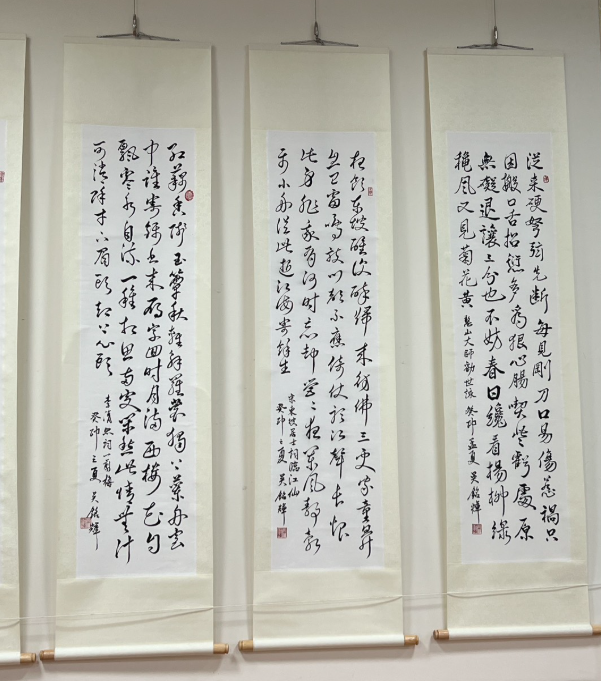 從來硬弩弦先斷 每見剛刀口易傷 惹禍只
因搬口舌 招愆多為狠心腸 喫些虧處原
無礙 退讓三分也不妨 春日纔看楊柳綠
穐風又見菊花黃 憨山大師勸世詠 癸卯孟夏 吳銘輝
夜飲東坡醒復醉歸來彷彿三更家童鼻
息已雷鳴敲門都不應倚仗聽江聲長恨
此身非我有何時忘却營々夜闌風靜縠
平小舟從此逝江海寄餘生
宋東坡居士詞臨江仙
癸卯之夏 吳銘輝
紅藕香殘玉簟秋輕解羅裳獨上蘭舟雲
中誰寄錦書來雁字回時月滿西樓花自
飄零水自流一種相思兩處閒愁此情無計
可消除才下眉頭却上心頭
李清照詞一剪梅
癸卯之夏 吳銘輝